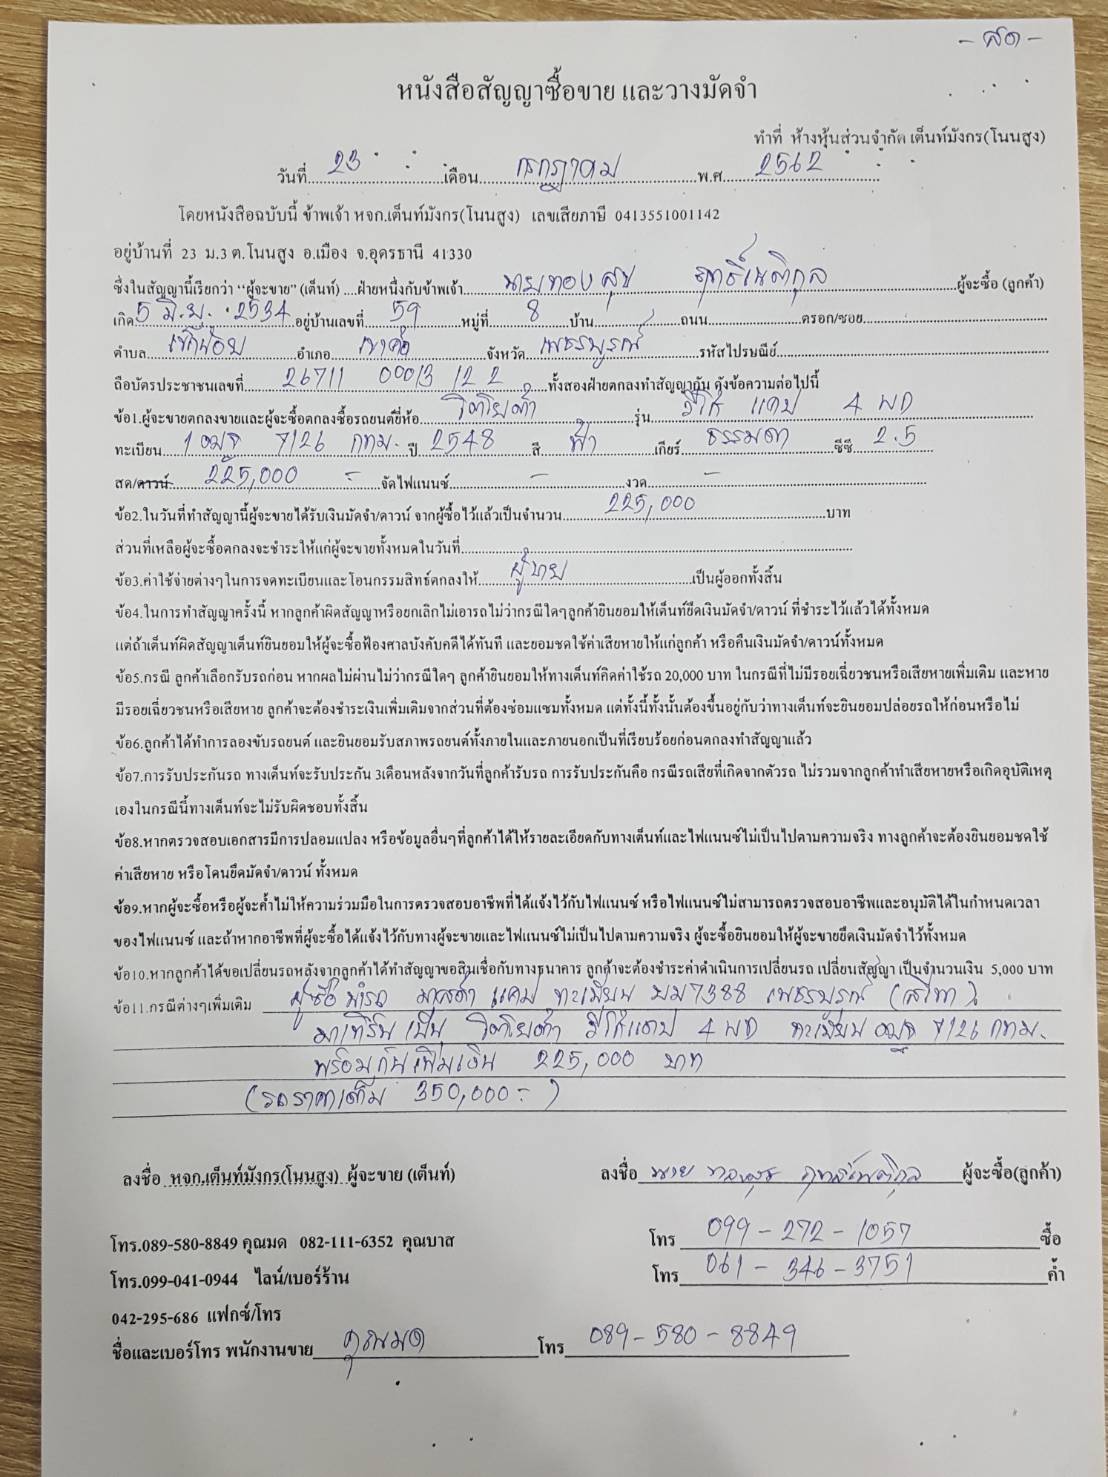 - สด -
หนังสือสัญญาซื้อขาย และวางมัดจำ
ทำที่ ห้างหุ้นส่วนจำกัด เต็นท์มังกร(โนนสูง)
วันที่ 23 เดือน กรกฎาคม พ.ศ. 2562
โดยหนังสือฉบับนี้ ข้าพเจ้า หจก.เต็นท์มังกร(โนนสูง) เลขเสียภาษี 0413551001142
อยู่บ้านที่ 23 ม.3 ต.โนนสูง อ.เมือง จ.อุดรธานี 41330
ซึ่งในสัญญานี้เรียกว่า "ผู้จะขาย" (เต็นท์) ....ฝ่ายหนึ่งกับข้าพเจ้า นายทองสุข ฤทธิ์เนติกุล ผู้จะซื้อ (ลูกค้า)
เกิด 5 มิ.ย. 2534 อยู่บ้านเลขที่ 59 หมู่ที่ 8 บ้าน ถนน ตรอก/ซอย
ตำบล เข็กน้อย อำเภอ เขาค้อ จังหวัด เพชรบูรณ์ รหัสไปรษณีย์
ถือบัตรประชาชนเลขที่ 26711 00013 12 2 ทั้งสองฝ่ายตกลงทำสัญญากัน ดังข้อความต่อไปนี้
ข้อ1.ผู้จะขายตกลงขายและผู้จะซื้อตกลงซื้อรถยนต์ยี่ห้อ โตโยต้า รุ่น วีโก้ แคป 4 WD
ทะเบียน 7126 กทม. ปี 2548 สี ฟ้า เกียร์ ธรรมดา ซีซี 2.5
สด/ดาวน์ 225,000 - จัดไฟแนนซ์ - งวด -
ข้อ2.ในวันที่ทำสัญญานี้ผู้จะขายได้รับเงินมัดจำ/ดาวน์ จากผู้ซื้อไว้แล้วเป็นจำนวน 225,000 บาท
ส่วนที่เหลือผู้จะซื้อตกลงจะชำระให้แก่ผู้จะขายทั้งหมดในวันที่
ข้อ3.ค่าใช้จ่ายต่างๆในการจดทะเบียนและโอนกรรมสิทธ์ตกลงให้ ผู้ขาย เป็นผู้ออกทั้งสิ้น
ข้อ4.ในการทำสัญญาครั้งนี้ หากลูกค้าผิดสัญญาหรือยกเลิกไม่เอารถไม่ว่ากรณีใดๆลูกค้ายินยอมให้เต็นท์ยึดเงินมัดจำ/ดาวน์ ที่ชำระไว้แล้วได้ทั้งหมด
แต่ถ้าเต็นท์ผิดสัญญาเต็นท์ยินยอมให้ผู้จะซื้อฟ้องศาลบังคับคดีได้ทันที และยอมชดใช้ค่าเสียหายให้แก่ลูกค้า หรือคืนเงินมัดจำ/ดาวน์ทั้งหมด
ข้อ5.กรณี ลูกค้าเลือกรับรถก่อน หากผลไม่ผ่านไม่ว่ากรณีใดๆ ลูกค้ายินยอมให้ทางเต็นท์คิดค่าใช้รถ 20,000 บาท ในกรณีที่ไม่มีรอยเฉี่ยวชนหรือเสียหายเพิ่มเติม และหาย
มีรอยเฉี่ยวชนหรือเสียหาย ลูกค้าจะต้องชำระเงินเพิ่มเติมจากส่วนที่ต้องซ่อมแซมทั้งหมด แต่ทั้งนี้ทั้งนั้นต้องขึ้นอยู่กับว่าทางเต็นท์จะยินยอมปล่อยรถให้ก่อนหรือไม่
ข้อ6.ลูกค้าได้ทำการลองขับรถยนต์ และยินยอมรับสภาพรถยนต์ทั้งภายในและภายนอกเป็นที่เรียบร้อยก่อนตกลงทำสัญญาแล้ว
ข้อ7.การรับประกันรถ ทางเต็นท์จะรับประกัน 3เดือนหลังจากวันที่ลูกค้ารับรถ การรับประกันคือ กรณีรถเสียที่เกิดจากตัวรถ ไม่รวมจากลูกค้าทำเสียหายหรือเกิดอุบัติเหตุ
เองในกรณีนี้ทางเต็นท์จะไม่รับผิดชอบทั้งสิ้น
ข้อ8.หากตรวจสอบเอกสารมีการปลอมแปลง หรือข้อมูลอื่นๆที่ลูกค้าได้ให้รายละเอียดกับทางเต็นท์และไฟแนนซ์ไม่เป็นไปตามความจริง ทางลูกค้าจะต้องยินยอมชดใช้
ค่าเสียหาย หรือโดนยึดมัดจำ/ดาวน์ ทั้งหมด
ข้อ9.หากผู้จะซื้อหรือผู้จะค้ำไม่ให้ความร่วมมือในการตรวจสอบอาชีพที่ได้แจ้งไว้กับไฟแนนซ์ หรือไฟแนนซ์ไม่สามารถตรวจสอบอาชีพและอนุมัติได้ในกำหนดเวลา
ของไฟแนนซ์ และถ้าหากอาชีพที่ผู้จะซื้อได้แจ้งไว้กับทางผู้จะขายและไฟแนนซ์ไม่เป็นไปตามความจริง ผู้จะซื้อยินยอมให้ผู้จะขายยึดเงินมัดจำไว้ทั้งหมด
ข้อ10.หากลูกค้าได้ขอเปลี่ยนรถหลังจากลูกค้าได้ทำสัญญาขอสินเชื่อกับทางธนาคาร ลูกค้าจะต้องชำระค่าดำเนินการเปลี่ยนรถ เปลี่ยนสัญญา เป็นจำนวนเงิน 5,000 บาท
ข้อ11.กรณีต่างๆเพิ่มเติม ผู้ซื้อ นำรถ มาสด้า แคป ทะเบียน บม7388 เพชรบูรณ์ (สีเทา)
มาเทิร์น เป็น โตโยต้า วีโก้แคป 4 WD ทะเบียน 7126 กทม.
พร้อมกับเพิ่มเงิน 225,000 บาท
(รถราคาเต็ม 350,000 - )
ลงชื่อ หจก.เต็นท์มังกร(โนนสูง) ผู้จะขาย (เต็นท์) ลงชื่อ นาย ทองสุข ฤทธิ์เนติกุล ผู้จะซื้อ(ลูกค้า)
โทร.089-580-8849 คุณมด 082-111-6352 คุณบาส โทร 099-272-1057 ซื้อ
โทร.099-041-0944 ไลน์/เบอร์ร้าน โทร 061-346-3751 ค้ำ
042-295-686 แฟกซ์/โทร
ชื่อและเบอร์โทร พนักงานขาย คุณมด โทร 089-580-8849